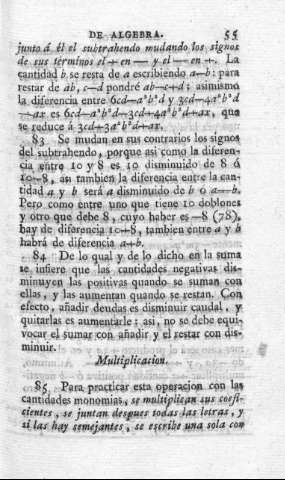 DE ALGEBRA. 55
junto á él el subtrahendo mudando los signos
de sus términos el + en — y el — en +. La
cantidad b se resta de a escribiendo a—b: para
restar de ab, c—d pondré ab—c+d: asimismo
la diferencia entre 6cd—a²b²d y 3cd—4a²b²d
—+ax es 6cd—a²b²d—3cd+4a²b²d+ax, que
se reduce á 3cd+3a²b²d+ax.
83 Se mudan en sus contrarios los signos
del subtrahendo, porque asi como la diferen-
cia entre 10 y 8 es 10 disminuido de 8 ó
10—8, asi tambien la diferencia entre la can-
tidad a y b será a disminuido de b ó a—b.
Pero como entre uno que tiene 10 doblones
y otro que debe 8, cuyo haber es —8 (78),
hay de diferencia 10+8, tambien entre a y b
habrá de diferencia a+b.
84 De lo qual y de lo dicho en la suma
se infiere que las cantidades negativas dis-
minuyen las positivas quando se suman con
ellas, y las aumentan quando se restan. Con
efecto, añadir deudas es disminuir caudal, y
quitarlas es aumentarle: asi, no se debe equi-
vocar el sumar con añadir y el restar con dis-
minuir.
Multiplicacion.
85 Para practicar esta operacion con las
cantidades monomias, se multiplican sus coefi-
cientes, se juntan despues todas las letras, y
si las hay semejantes, se escribe una sola con